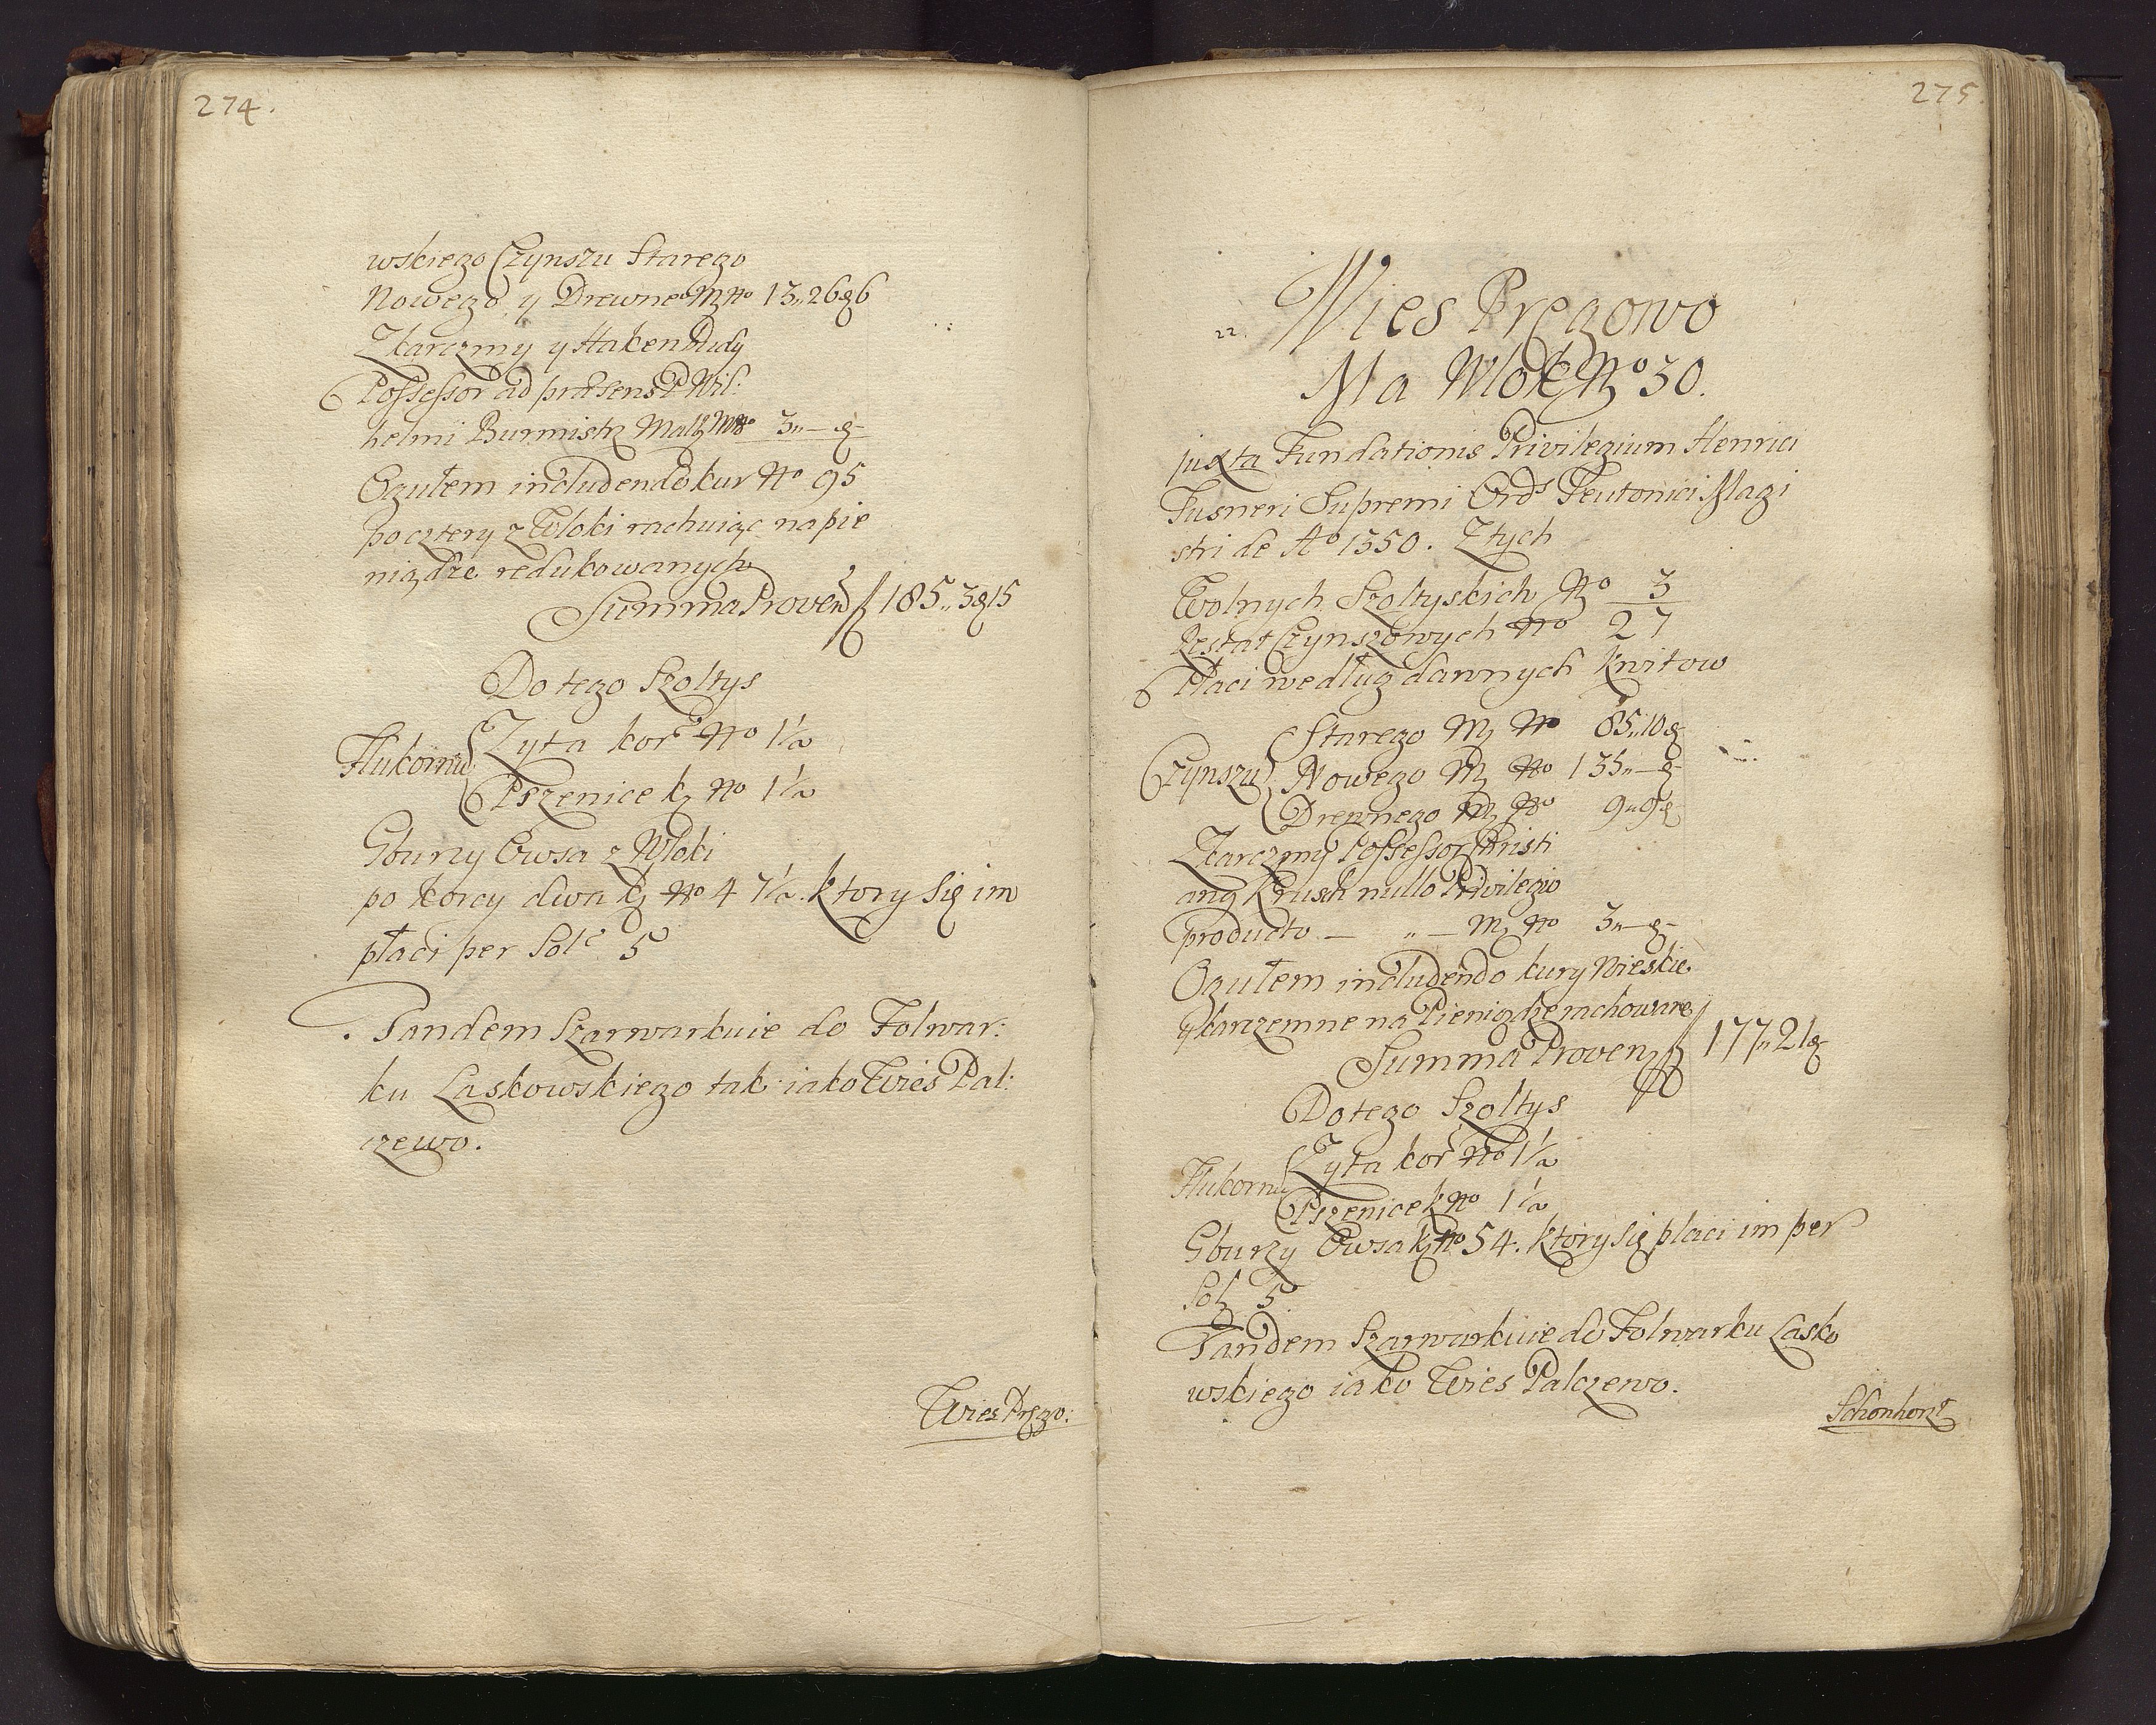 274.
wskiego Czynszu Starego
Nowego y Drewne. M No 13,, 26 g 6
Z karczmy y Haken Budy
Possessor ad præsens P Wil:
helmi Burmistrz Malb M No 3,, — g —
Ogułem includendo kur No 95
po cztery z Włoki rachuiąc na pie
niądze redukowanych
Summa Proven f 185,, 3 g 15
Do tego Szoltys
Hukornu Zyta kor No 1 1/2
Pszenice k No 1 1/2
Gburzy Owsa z Włoki
po korcy dwa k No 47 1/2. ktory się im
płaci per Sol 5
Tandem Szarwarkuie do Folwar:
ku Laskowskiego tak iako Wies Pal:
czewo.
Wies Pręgo:
275.
22. Wies Pręgowo
Ma Włok No 30.
juxta Fundationis Privilegium Henrici
Fusneri Supremi Ords Teutonici Magi
stri de Ao 1350. Z tych
Wolnych Szoltyskich No 3
Restat Czynszowych No 27
Płaci według dawnych kwitow
Starego M No 85,, 10 g
Czynszu Nowego M No 135,, — g —
Drewnego M No 9,, 9 g
Z karczmy Possessor Christi
ang Krusch nullo Privilegio
producto — ,, — M No 3,, — g —
Ogułem includendo kury Wieskie
y karczemne na Pieniądze rachowane
Summa Proven f 177,, 21 g
Do tego Szoltys
Hukornu Zyta kor No 1 1/2
Pszenice k No 1 1/2
Gburzy Owsa k No 54. ktory się płaci im per
Sol 5
Tandem Szarwarkuie do Folwarku Lasko
wskiego iako Wies Palczewo.
Schonhorst